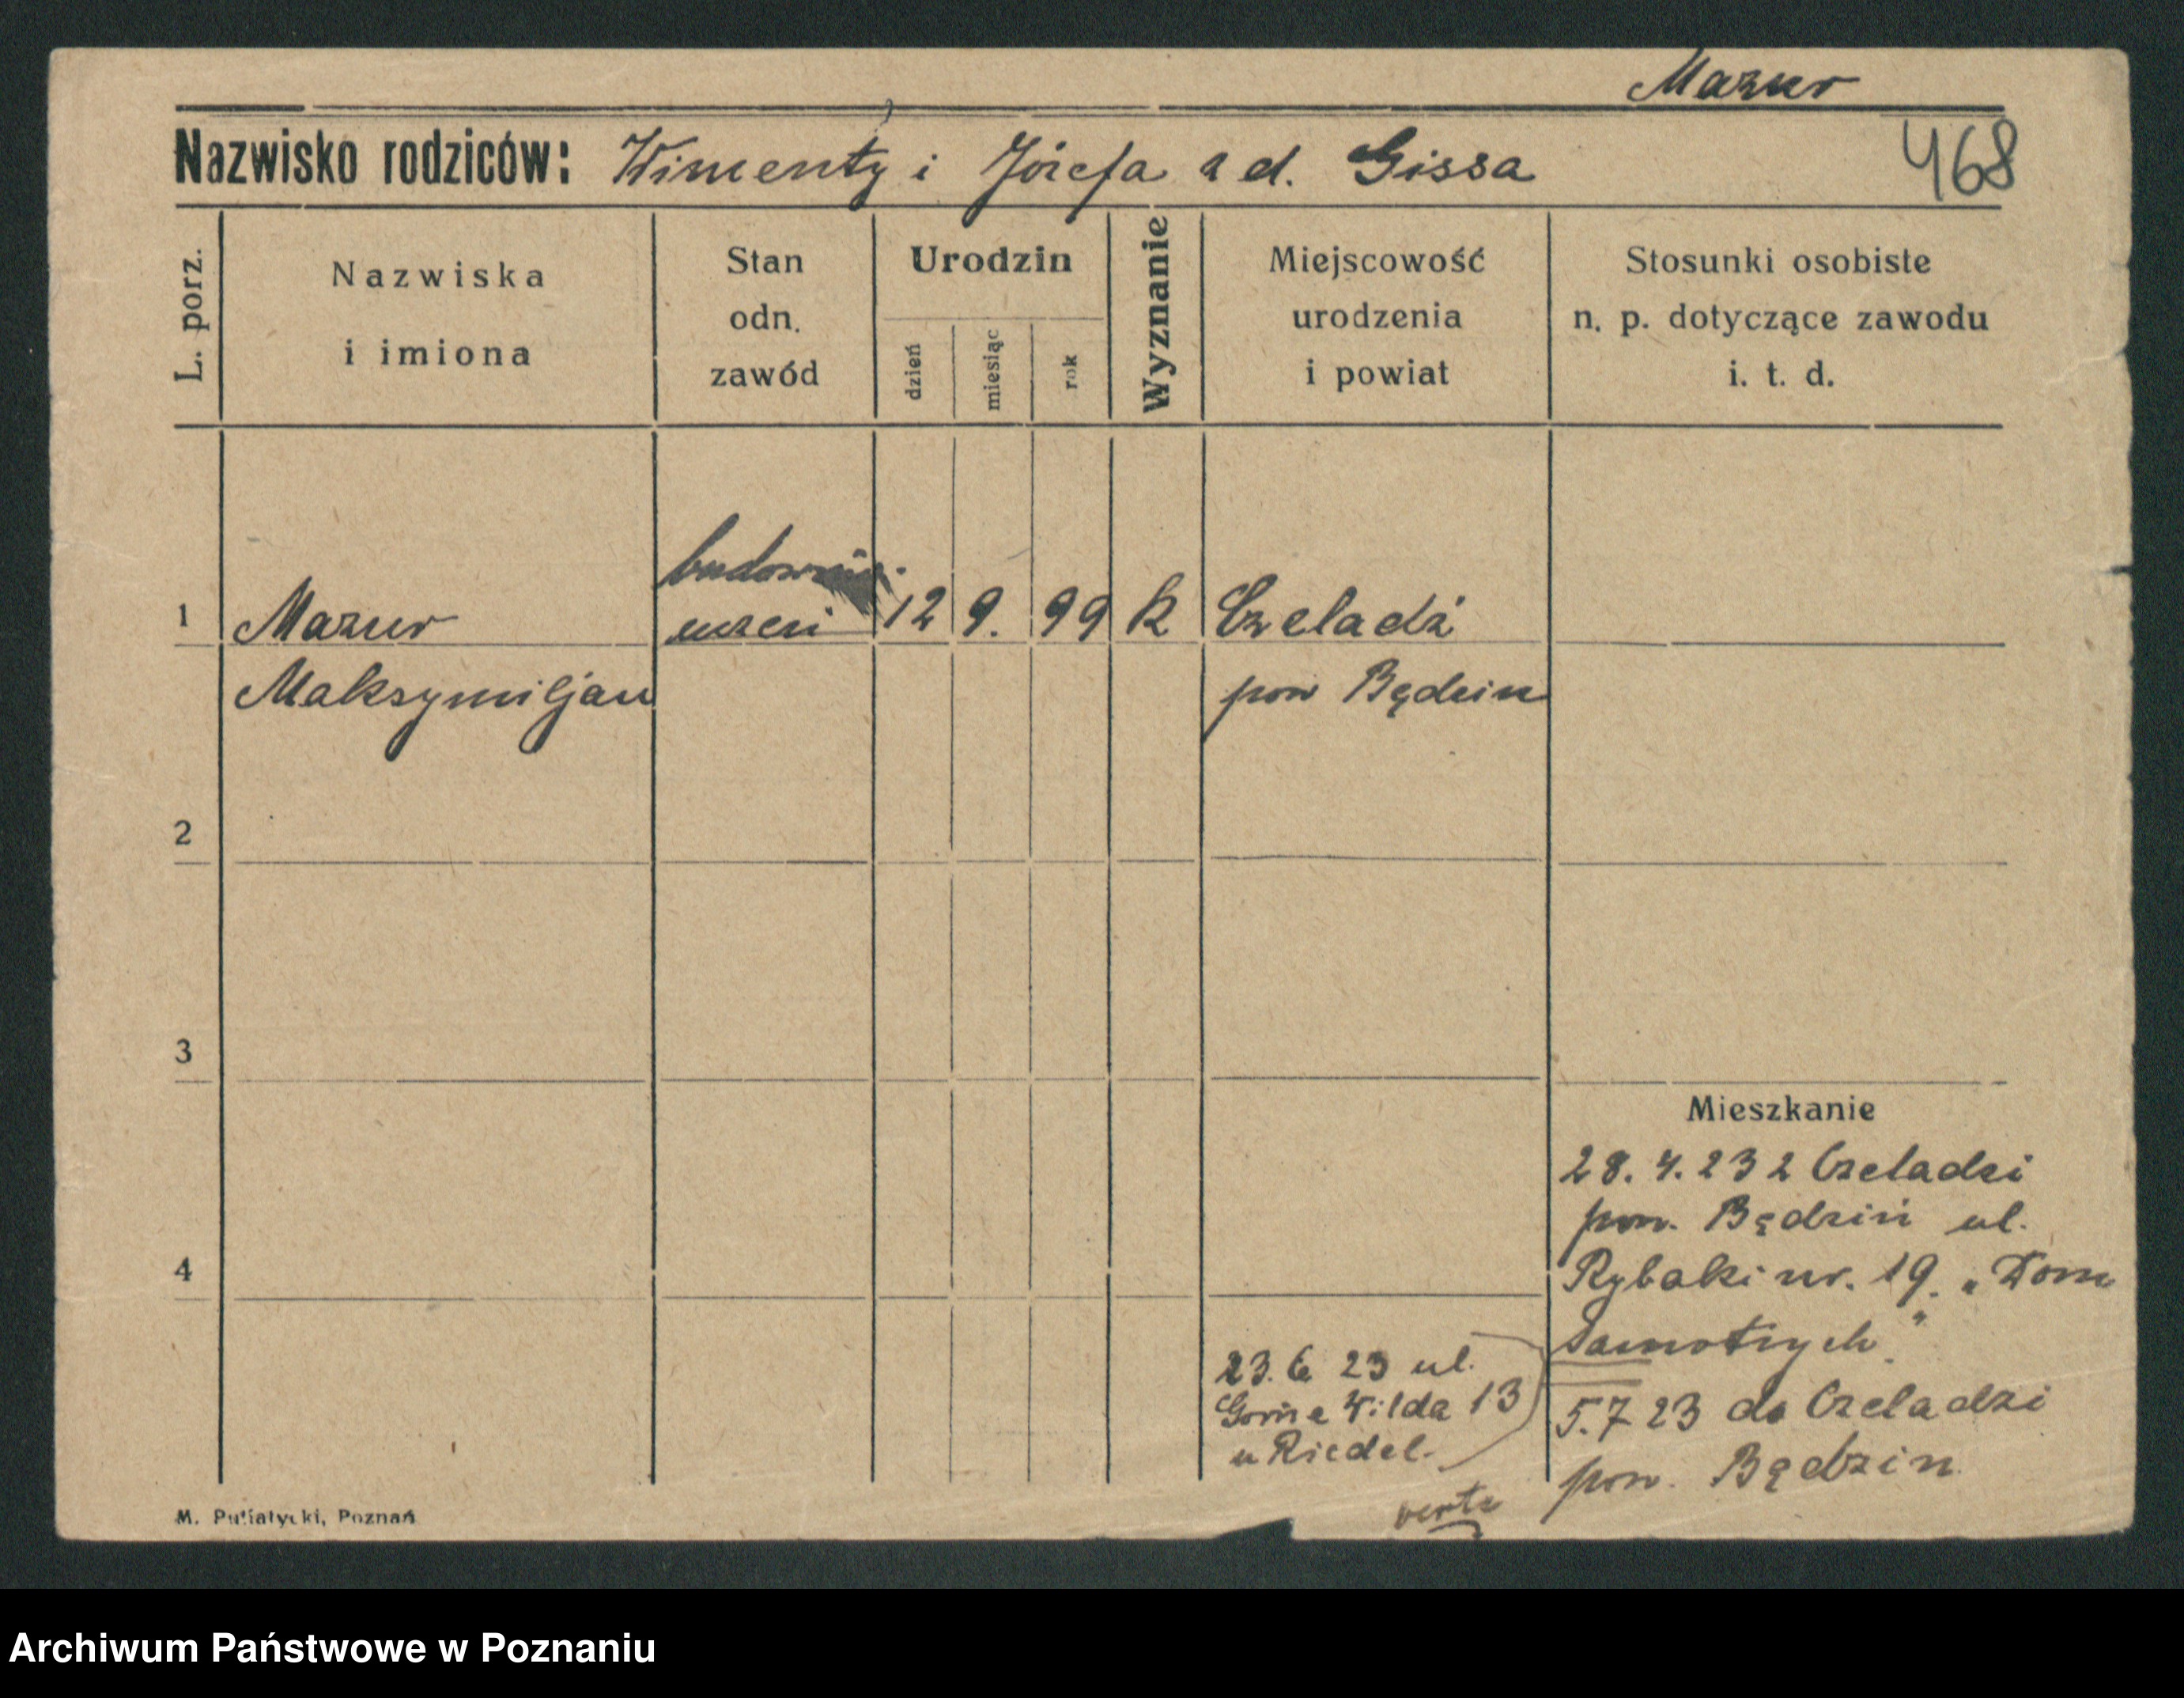 Mazur
468
Nazwisko rodziców: Wincenty i Józefa z d. Gissa
L. porz.
Nazwiska
i imiona
Stan
odn.
zawód
Urodzin
dzień
miesiąc
rok
Wyznanie
Miejscowość
urodzenia
i powiat
Stosunki osobiste
n. p. dotyczące zawodu
i. t. d.
1
Mazur
Maksymiljan
uczeń
12
9.
99
k
Czeladź
pow Będzin
2
3
4
Mieszkanie
28. 4. 23 z Czeladzi
pow. Będzin ul.
Rybaki nr. 19. „Dom
Samotnych"
23. 6 23 ul.
Górna Wilda 13
u Riedel.
5. 7 23 do Czeladzi
pow. Będzin
verte
M. Putiatycki, Poznań
Archiwum Państwowe w Poznaniu